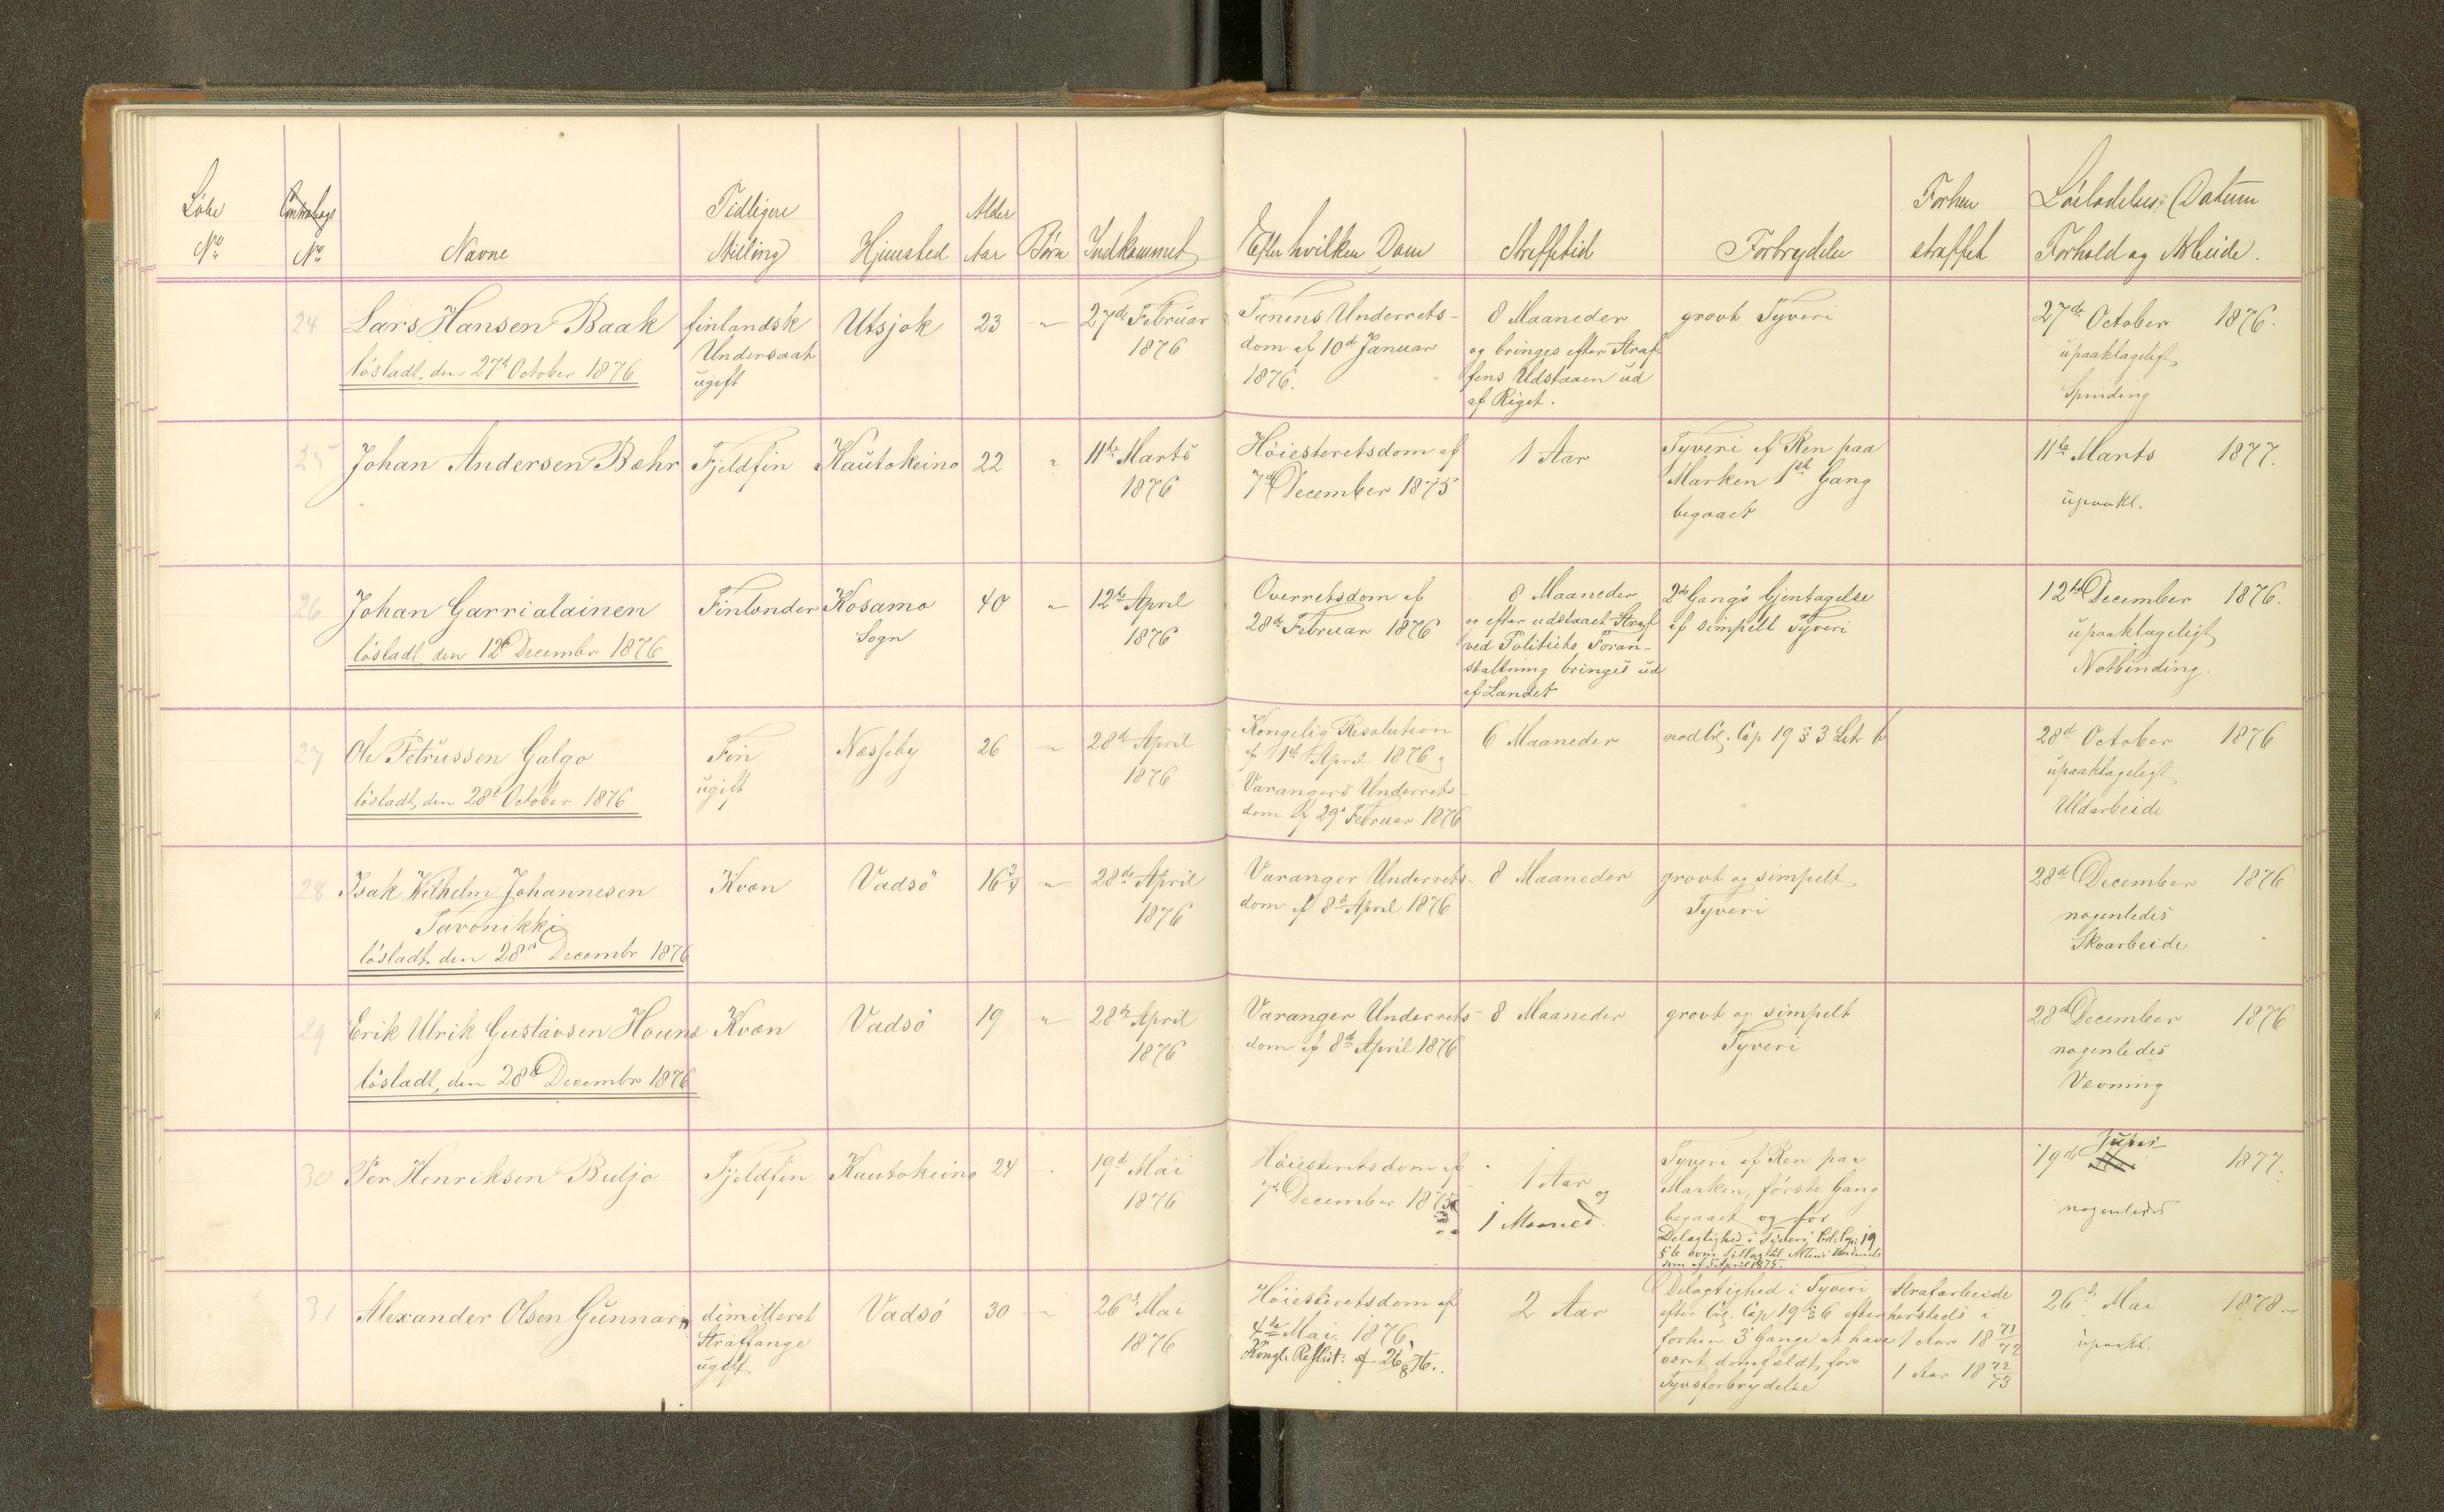 Löbe
No
No
Navne
Tidligere
Stilling
Hjemsted
Alder
Aar
Börn
Indkommet
Efter hvilken Dom
Straffetid
Forbrydelse
Forhen
straffet
Lösladelses Datum
Forhold og Arbeide.
24
Lars Hansen Baak
lösladt, den 27d October 1876
finlandsk
Undersaat
ugift
Utsjok
23
"
27de Februar
1876
Tanens Underrets-
dom af 10d Januar
1876.
8 Maaneder
og bringes efter Straf-
fens Udstaaen ud
af Riget.
grovt Tyveri
27de October 1876.
upaaklageligt
Spinding
25
Johan Andersen Bæhr
Fjeldfin
Kautokeino
22
"
11te Marts
1876
Höiesteretsdom af
7d December 1875
1 Aar
Tyveri af Ren paa
Marken 1ste Gang
begaaet
11te Marts 1877.
upaakl.
26
Johan Garrialainen
lösladt den 12te Decembr 1876
Finlender
Kosamo
Sogn
40
"
12te April
1876
Overretsdom af
28de Februar 1876
8 Maaneder
og efter udstaaet Straf
ved Politiets Foran-
staltning bringes ud
af Landet
2de Gangs Gjentagelse
af simpelt Tyveri
12te December 1876.
upaaklageligt
Notbinding.
27
Ole Petrussen Galgo
lösladt, den 28d October 1876
Fin
ugift
Næsseby
26
"
28d April
1876
Kongelig Resolution
af 1ste April 1876 a
Varangers Underrets-
dom af 29d Februar 1876
6 Maaneder
modCrl. Cap 19 § 3 Litr b
28d October 1876
upaaklageligt
Uldarbeide
28
Isak Wilhelm Johannesen
Tavonikki
lösladt, den 28d Decembr 1876
Kvæn
Vadsö
16 3/4
"
28de April
1876
Varanger Underrets-
dom af 8d April 1876
8 Maaneder
grovt og simpelt
Tyveri
28d December 1876
nogenledes
Skoarbeide
29
Erik Ulrik Gustavsen Houna
lösladt, den 28d Decembr 1876
Kvæn
Vadsö
19
"
28de April
1876
Varanger Underrets-
dom af 8de April 1876
8 Maaneder
grovt og simpelt
Tyveri
28d December 1876
nogenledes
Vævning
30
Per Henriksen Buljo
Fjeldfin
Kautokeino
24
19d Mai
1876
Höiesteretsdom af
7d December 1875
1 Aar
og
1 Maaned.
Tyveri af Ren paa
Marken, förste Gang
begaaet og for
Delagtighed i Tyveri Crl. Cap: 19
§ 6 som Tillæg til Altens Underrets
dom af 5 April 1875.
19de Juni 1877.
nogenledes
31
Alexander Olsen Gunnari
dimitteret
Straffange
ugift
Vadsö
30
"
26d Mai
1876
Höiesteretsdom af
4de Mai 1876,
Kongl. Resolut: af 26/8 76.
2 Aar
Delagtighed i Tyveri
efter Crl. Cap 19 § 6 efter
forhen 3 Gange at have
været domfældt for
Tyvsforbrydelse
Strafarbeide
hersteds i
1 Aar 18 71/72
1 Aar 18 72/73
26d Mai 1878.
upaakl.